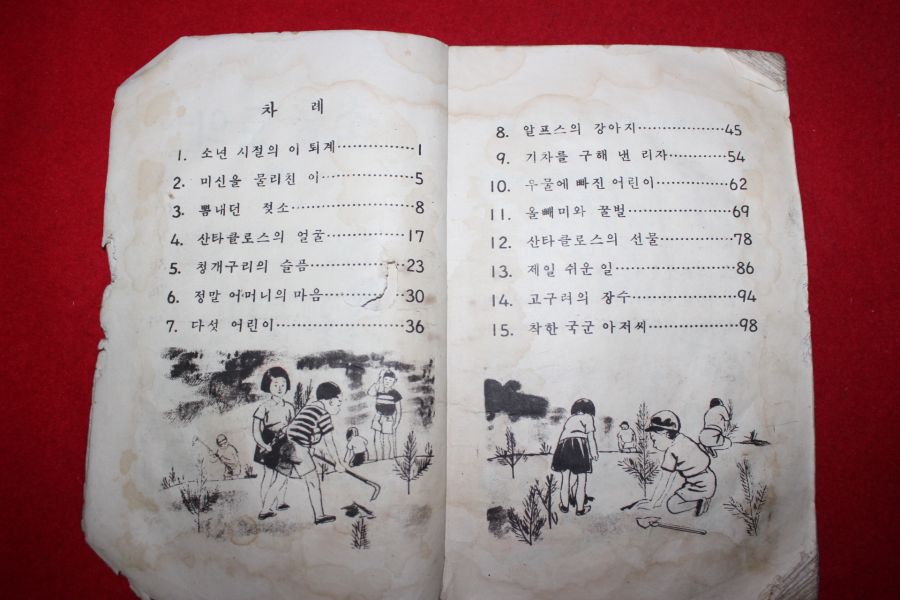 차 례
1. 소년 시절의 이 퇴계 ⋯⋯⋯⋯ 1
2. 미신을 물리친 이 ⋯⋯⋯⋯ 5
3. 뽐내던 젖소 ⋯⋯⋯⋯ 8
4. 산타클로스의 얼굴 ⋯⋯⋯⋯ 17
5. 청개구리의 슬픔 ⋯⋯⋯⋯ 23
6. 정말 어머니의 마음 ⋯⋯⋯⋯ 30
7. 다섯 어린이 ⋯⋯⋯⋯ 36
8. 알프스의 강아지 ⋯⋯⋯⋯ 45
9. 기차를 구해 낸 리자 ⋯⋯⋯⋯ 54
10. 우물에 빠진 어린이 ⋯⋯⋯⋯ 62
11. 올빼미와 꿀벌 ⋯⋯⋯⋯ 69
12. 산타클로스의 선물 ⋯⋯⋯⋯ 78
13. 제일 쉬운 일 ⋯⋯⋯⋯ 86
14. 고구려의 장수 ⋯⋯⋯⋯ 94
15. 착한 국군 아저씨 ⋯⋯⋯⋯ 98